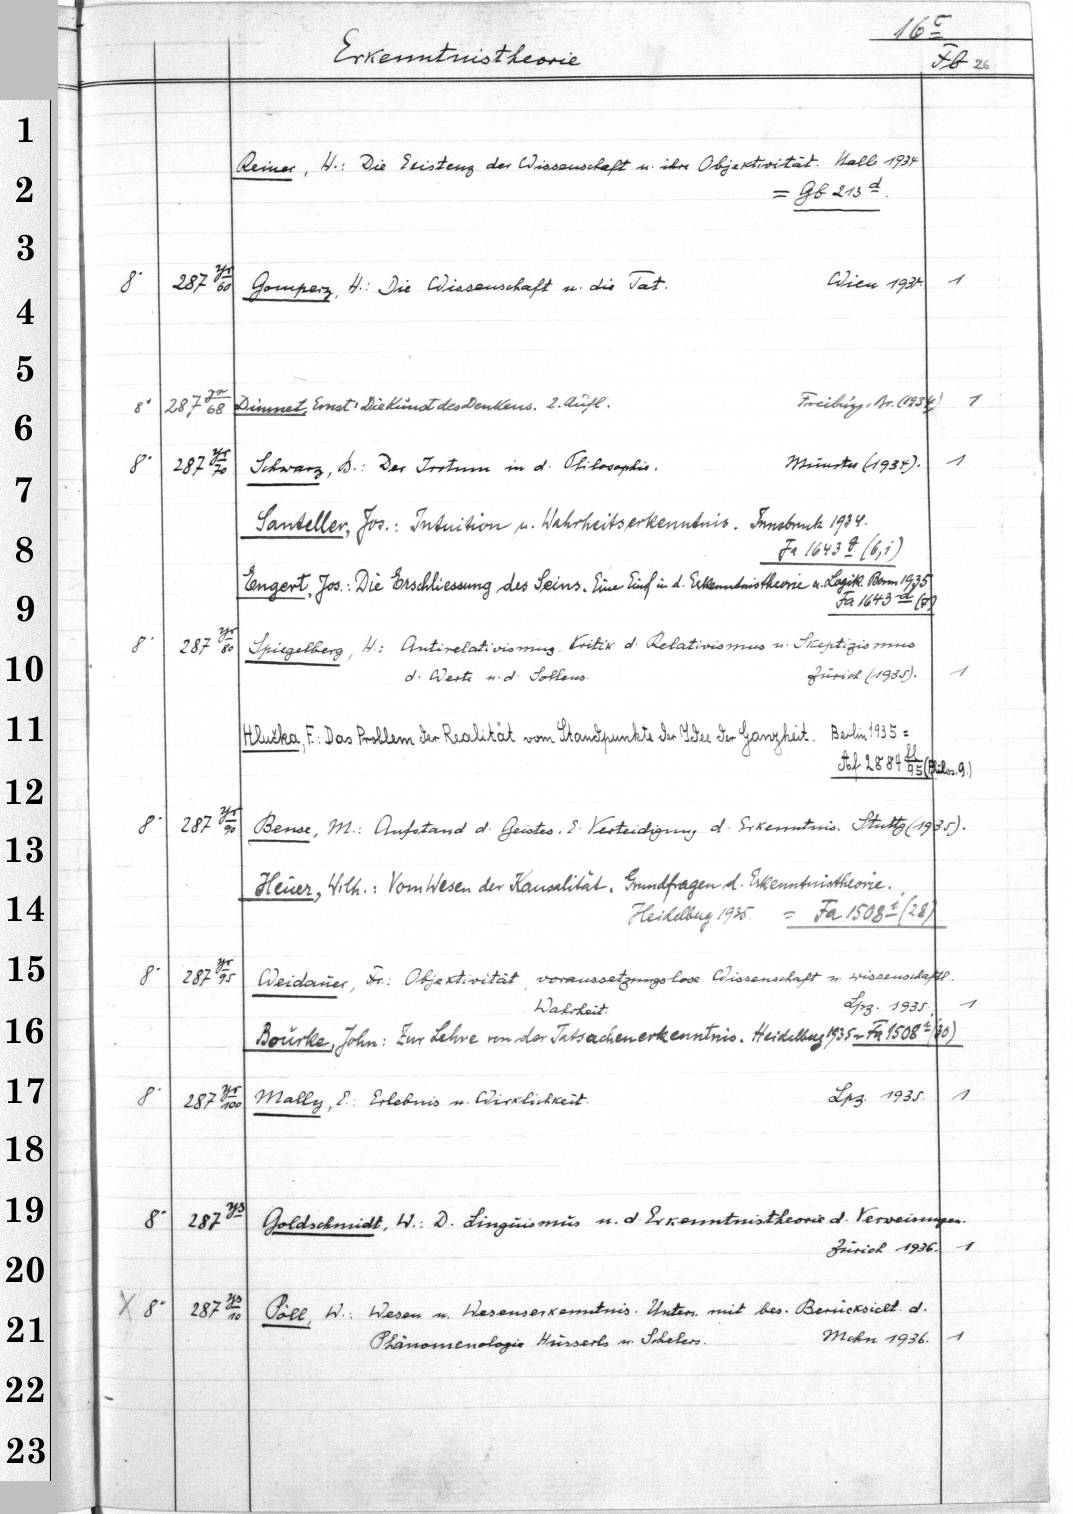 16 c
Erkenntnistheorie
Fb 26
1
Reiner, H.: Die Existenz der Wissenschaft u. ihre Objektivität. Halle 1934
2
= Gb 213 d.
3
8° 287 yr/60 Gomperz, H.: Die Wissenschaft u. die Tat. Wien 1934. 1
4
5
8° 287 yr/68 Dimnet, Ernst: Die Kunst des Denkens. 2. Aufl. Freiburg, Br. (1934) 1
6
8° 287 yr/70 Schwarz, B.: Der Irrtum in d. Philosophie. Münster (1934). 1
7
Santeller, Jos.: Intuition u. Wahrheitserkenntnis. Innsbruck 1934.
8
Fa 1643 g (6,i)
Engert, Jos.: Die Erschliessung des Seins. Eine Einf in d. Erkenntnistheorie u. Logik. Bonn 1935
9
Fa 1643 d (7)
8° 287 yr/80 Spiegelberg, H.: Antirelativismus. Kritik d. Relativismus u. Skeptizismus
10
d. Werte u. d. Sollens. Zürich (1935). 1
11
Hlučka, F.: Das Problem der Realität vom Standpunkte der Idee der Ganzheit. Berlin 1935 =
Af 2884 ff/95 (Philos. 9.)
12
8° 287 yr/90 Bense, M.: Aufstand d. Geistes. E. Verteidigung d. Erkenntnis. Stuttg (1935).
13
Heuer, Wilh.: Vom Wesen der Kausalität. Grundfragen d. Erkenntnistheorie.
14
Heidelbug 1935. = Fa 1508 i (28)
15
8° 287 yr/95 Weidauer, Fr.: Objektivität, voraussetzungslose Wissenschaft u. wissenschaftl.
Wahrheit. Lpz. 1935. 1
16
Bourke, John: Zur Lehre von der Tatsachenerkenntnis. Heidelbug 1935 = Fa 1508 i (30)
17
8° 287 yr/100 Mally, E.: Erlebnis u. Wirklichkeit. Lpz. 1935. 1
18
19
8° 287 ys Goldschmidt, W.: D. Linguismus u. d. Erkenntnistheorie d. Verweisungen.
20
Zürich 1936. 1
X 8° 287 ys/10 Pöll, W.: Wesen u. Wesenserkenntnis. Unters. mit bes. Berücksicht. d.
21
Phänomenologie Husserls u. Schelers. Mchn 1936. 1
22
23